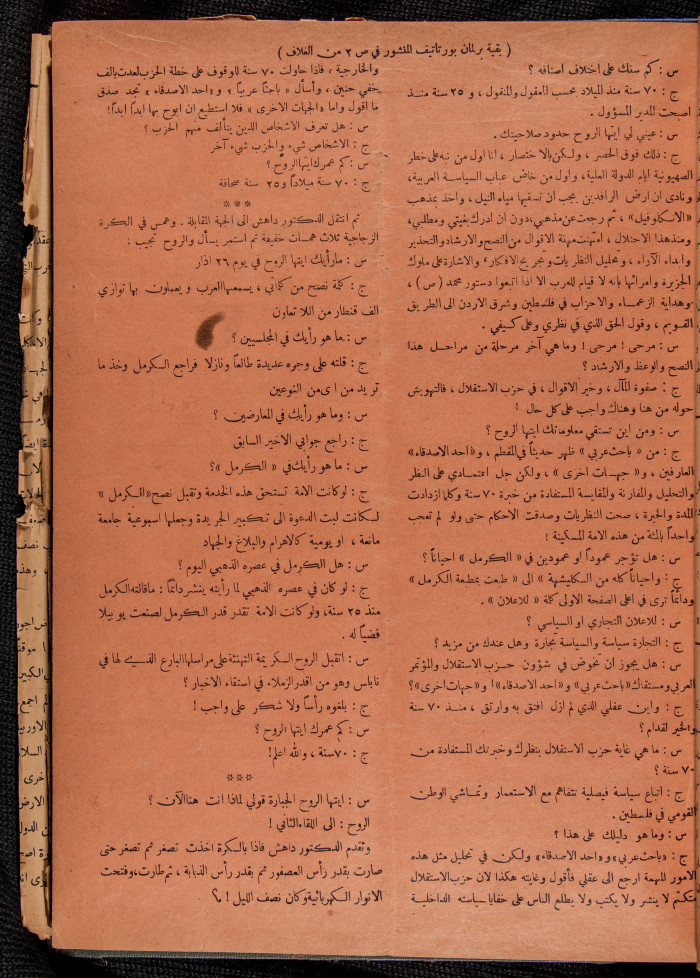 ( بقية برلمان بور تاتيف المنشور في ص ٢ من الغلاف )
س : كم سنك على اختلاف اصنافه ؟
ج : ٧٠ سنة منذ الميلاد بحسب المعقول والمنقول ، و ٢٥ سنة منـذ
اصبحت المدير المسؤول .
س : عيني لي ايتها الروح حدود صلاحيتك .
ج : ذلك فوق الحصر ، ولكن بالاختصار ، انا اول من نبه على خطر
الصهيونية ايام الدولة العلية، واول من خاض عباب السياسة العربية،
ونادى ان ارض الرافدين يجب ان تسقيها مياه النيل ، واخذ بمذهب
« الاسكوفيل» ، ثم رجعت عن مذهبي، دون ان ادرك بغيتي ومطلبي،
ومنذ هذا الاحتلال ، امتهنت مهنة الاقوال من النصح والارشاد والتحذير
وابداء الآراء ، وتحليل النظريات وتجريح الافكار، والاشارة على ملوك
الجزيرة وامرائها بانه لا قيام للعرب الا اذا اتبعوا دستور محمد (ص) ،
وهداية الزعماء والاحزاب في فلسطين وشرق الاردن الى الطريق
القويم ، وقول الحق الذي في نظري وعلى كيفي .
س : مرحى ! مرحى ! وما هي آخر مرحلة من مراحل هذا
النصح والوعظ والارشاد ؟
ج : صفوة المآل ، وخير الاقوال ، في حزب الاستقلال ، فالتهويش
حوله من هنا وهناك واجب على كل حال !
س : ومن اين تستقي معلوماتك ايتها الروح ؟
ج : من « باحث عربي » ظهر حديثاً في المقطم ، و « احد الاصدقاء »
العارفين ، و « جهات اخرى » ، ولكن جل اعتمادي على النظر
والتحليل والمقارنة والمقايسة المستفادة من خبرة ٧٠ سنة وكلما ازدادت
المدة والخبرة ، صحت النظريات وصدقت الاحكام حتى ولو لم تعجب
واحداً بالمئة من هذه الامة المسكينة !
س : هل تؤجر عموداً او عمودين في « الكرمل » احياناً ؟
ج : واحياناً كله من السكليشهة » الى « طبعت بمطبعة الكرمل »
ودائماً ترى في اعلى الصفحة الاولى كلمة « للاعلان » .
س : للاعلان التجاري او السياسي ؟
ج : التجارة سياسة والسياسة تجارة وهل عندك من مزيد ؟
س : هل يجوز ان تخوض في شؤون حزب الاستقلال والمؤتمر
العربي ومستقاك «باحث عربي» و « احد الاصدقاء» ! و «جهات اخرى» ؟
ج : واين عقلي الذي لم ازل افتق به وارتق ، منـذ ٧٠ سنة
والخير لقدام ؟
س : ما هي غاية حزب الاستقلال بنظرك وخبرتك المستفادة من
٧٠ سنة ؟
ج : اتباع سياسة فيصلية تتفاهم مع الاستعمار وتماشي الوطن
القومي في فلسطين .
س : وما هو دليلك على هذا ؟
ج : «باحث عربي» و «احد الاصدقاء» ولكن في تحليل مثل هذه
الامور المهمة ارجع الى عقلي فأقول وغايته هكذا لان حزب الاستقلال
متكتم لا ينشر ولا يكتب ولا يطلع الناس على خفايا سياسته الداخلية
والخارجية ، فاذا حاولت ٧٠ سنة للوقوف على خطة الحزب لعدت بالف
خفي حنين ، وأسأل « باحثاً عربياً » و « واحد الاصدقاء » تجد صدق
ما اقول واما «الجهات الاخرى » فلا استطيع ان ابوح بها ابداً ابداً!
س : هل تعرف الاشخاص الذين يتألف منهم الحزب ؟
ج : الاشخاص شيء والحزب شيء آخر
س : كم عمرك ايتها الروح ؟
ج : ٧٠ سنة ميلاداً و ٢٥ سنة صحافة
* * *
ثم انتقل الدكتور داهش الى الجهة المقابلة . وهمس في الكرة
الزجاجية ثلاث همسات خفيفة ثم استمر يسأل والروح تجيب :
س : ما رأيك ايتها الروح في يوم ٢٦ اذار
ج : كلمة نصح من كلماتي ، يسمعها العرب ويعملون بها توازي
الف قنطار من اللا تعاون
س : ما هو رأيك في المجلسيين ؟
ج : قلته على وجوه عديدة طالعاً ونازلا فراجع السكرمل وخذ ما
تريد من اي من النوعين
س : وما هو رأيك في المعارضين ؟
ج : راجع جوابي الاخير السابق
س : ما هو رأيك في « الكرمل » ؟
ج : لو كانت الامة تستحق هذه الخدمة وتقبل نصح « السكرمل »
لسكانت لبت الدعوة الى تكبير الجريدة وجعلها اسبوعية جامعة
مانعة ، او يومية كالاهرام والبلاغ والجهاد
س : هل الكرمل في عصره الذهبي اليوم ؟
ج : لو كان في عصره الذهبي لما رأيته ينشر دائماً : ما قالته الكرمل
منذ ٢٥ سنة، ولو كانت الامة تقدر قدر الكرمل لصنعت يوبيلا
فضياً له .
س : اتقبل الروح السكريمة التهنئة على مراسلها البارع الذي لها في
نابلس وهو من اقدر الزملاء في استقاء الاخبار ؟
ج : بلغوه رأساً ولا شكر على واجب !
س : كم عمرك ايتها الروح ؟
ج : ٧٠ سنة ، والله اعلم!
* * *
س : ايتها الروح الجبارة قولي لماذا انت هنا الآن ؟
الروح : الى اللقاء الثاني !
وتقدم الدكتور داهش فاذا بالكرة اخذت تصغر ثم تصغر حتى
صارت بقدر رأس العصفور ثم بقدر رأس الذبابة ، ثم طارت، وفتحت
الانوار الكهربائية وكان نصف الليل ! م؟